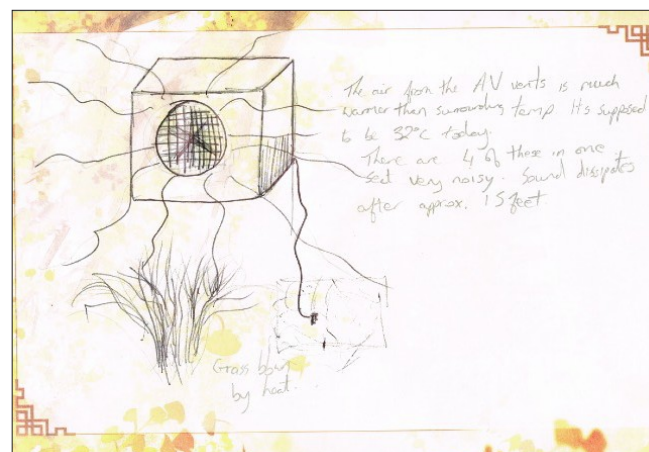 The air from the AV vents is much
warmer than surrounding temp Its supposed
to be 32°C today.
There are 4 of these in one
seat very noisy. Sound dissipates
after approx. 15 feet
Grass
by heat.